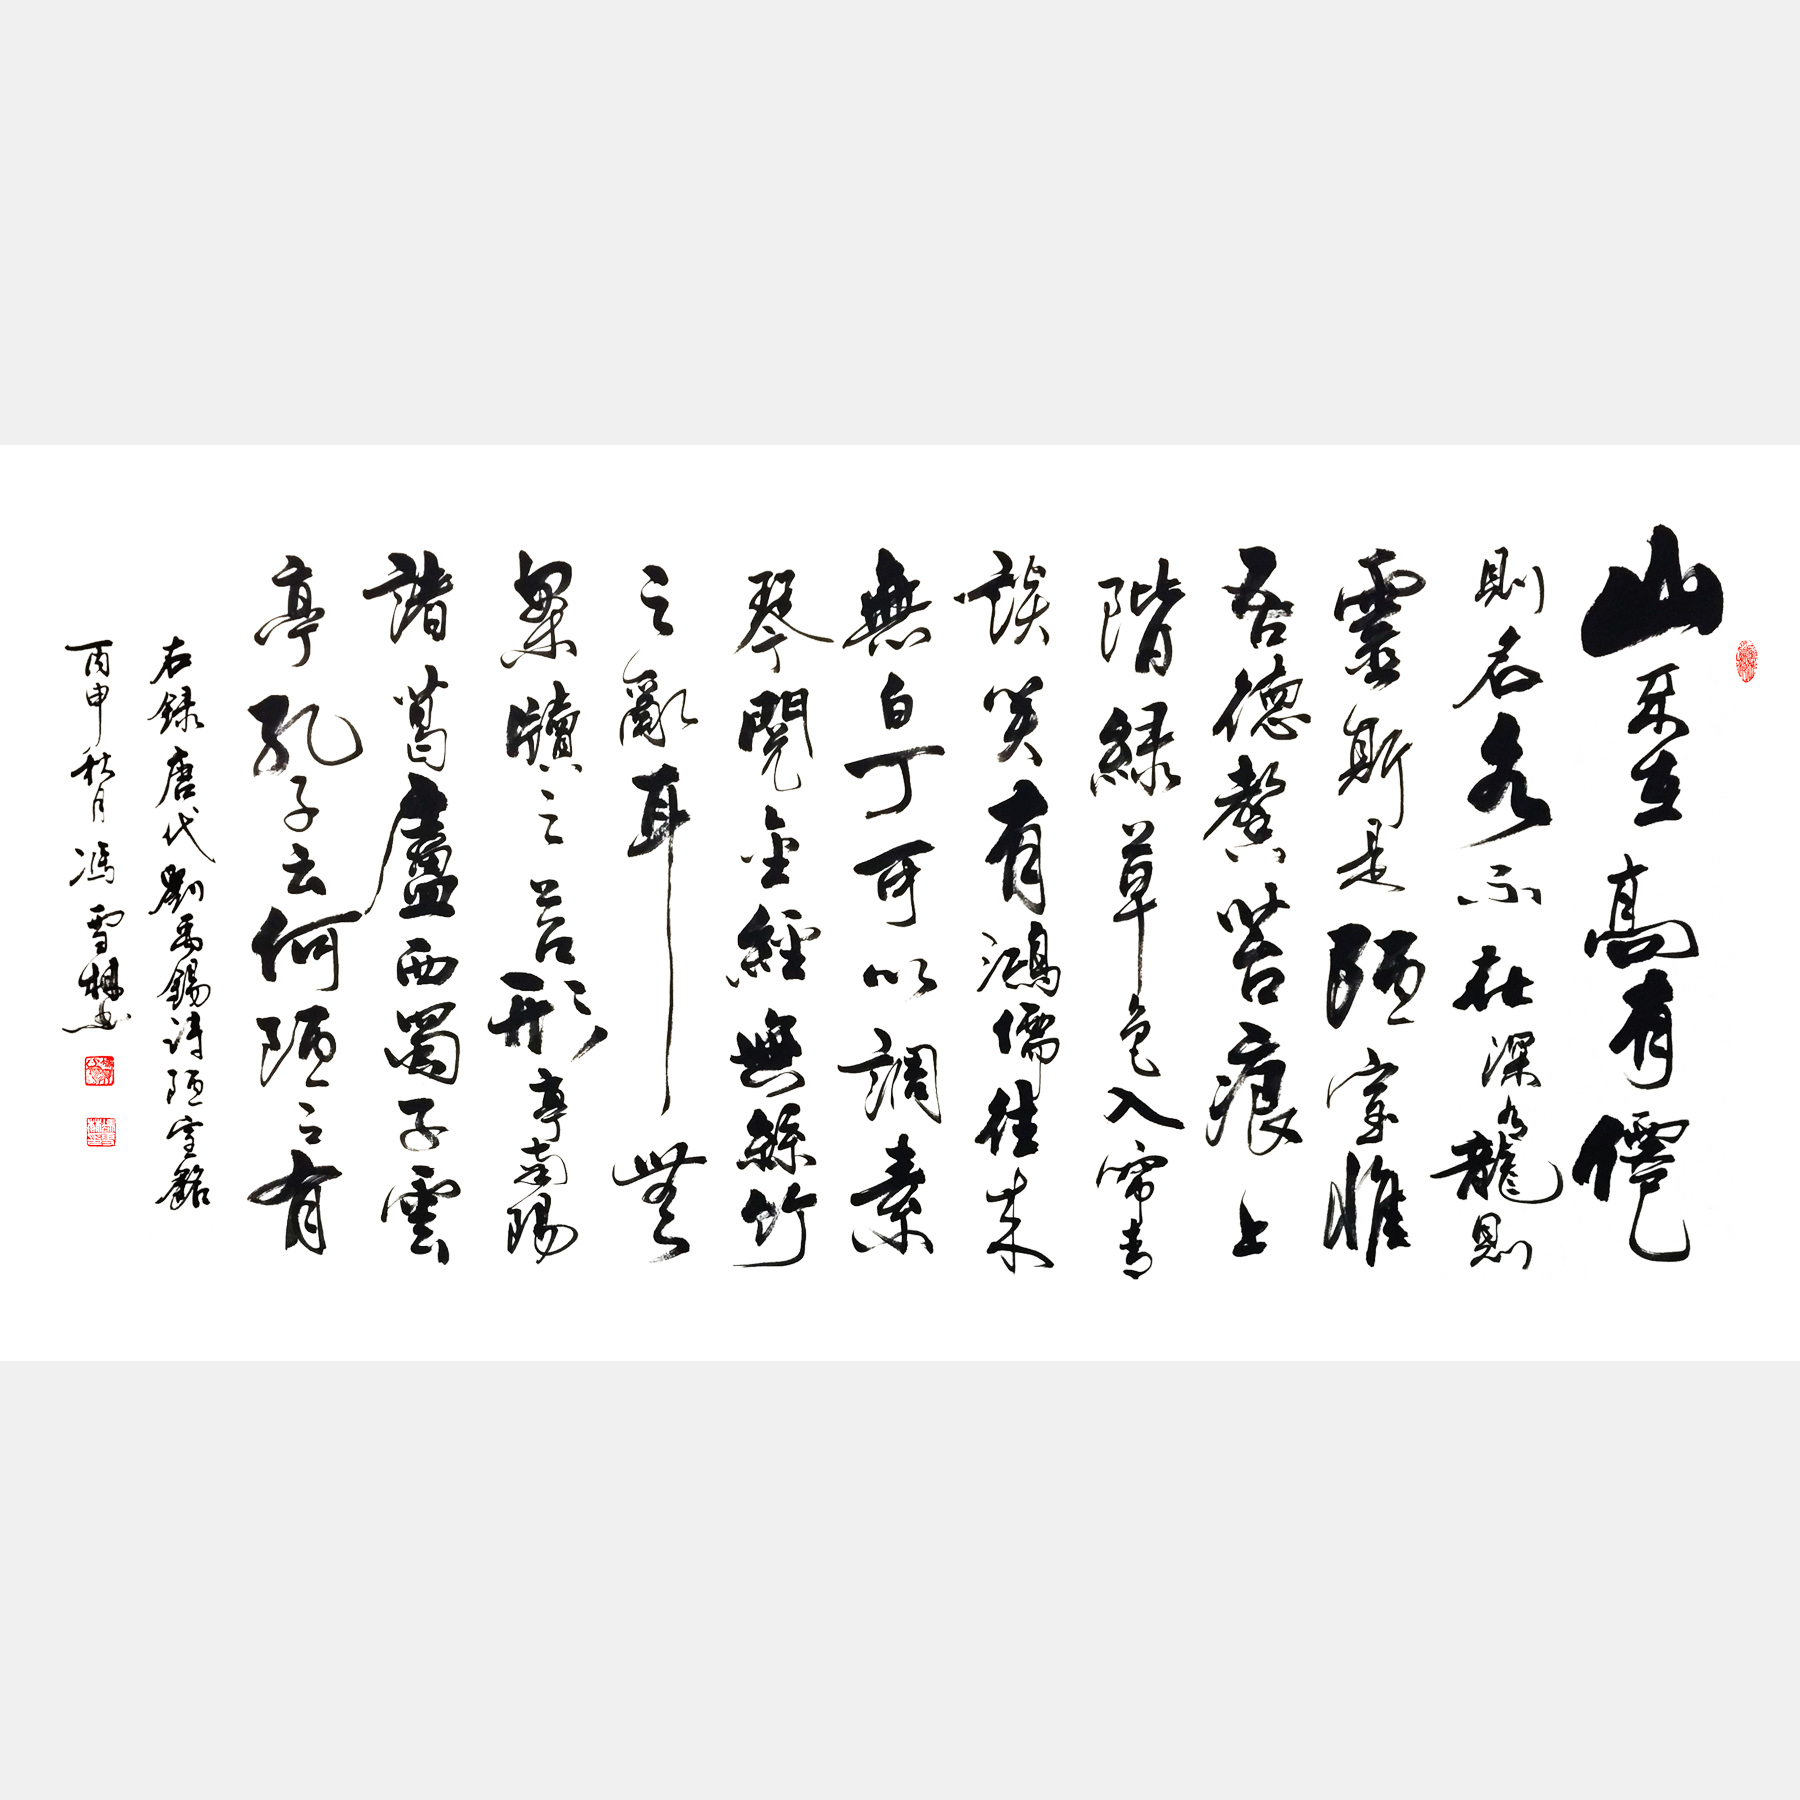 山不在高有僊
則名水不在深有龍則
靈斯是陋室惟
吾德馨苔痕上
階綠草色入簾青
談笑有鴻儒往來
無白丁可以調素
琴閱金經無絲竹
之亂耳無
牘之苦形亭南陽
諸葛廬西蜀子雲
亭孔子云何陋之有
右録唐代劉禹錫詩陋室銘
丙申秋月馮雪林書